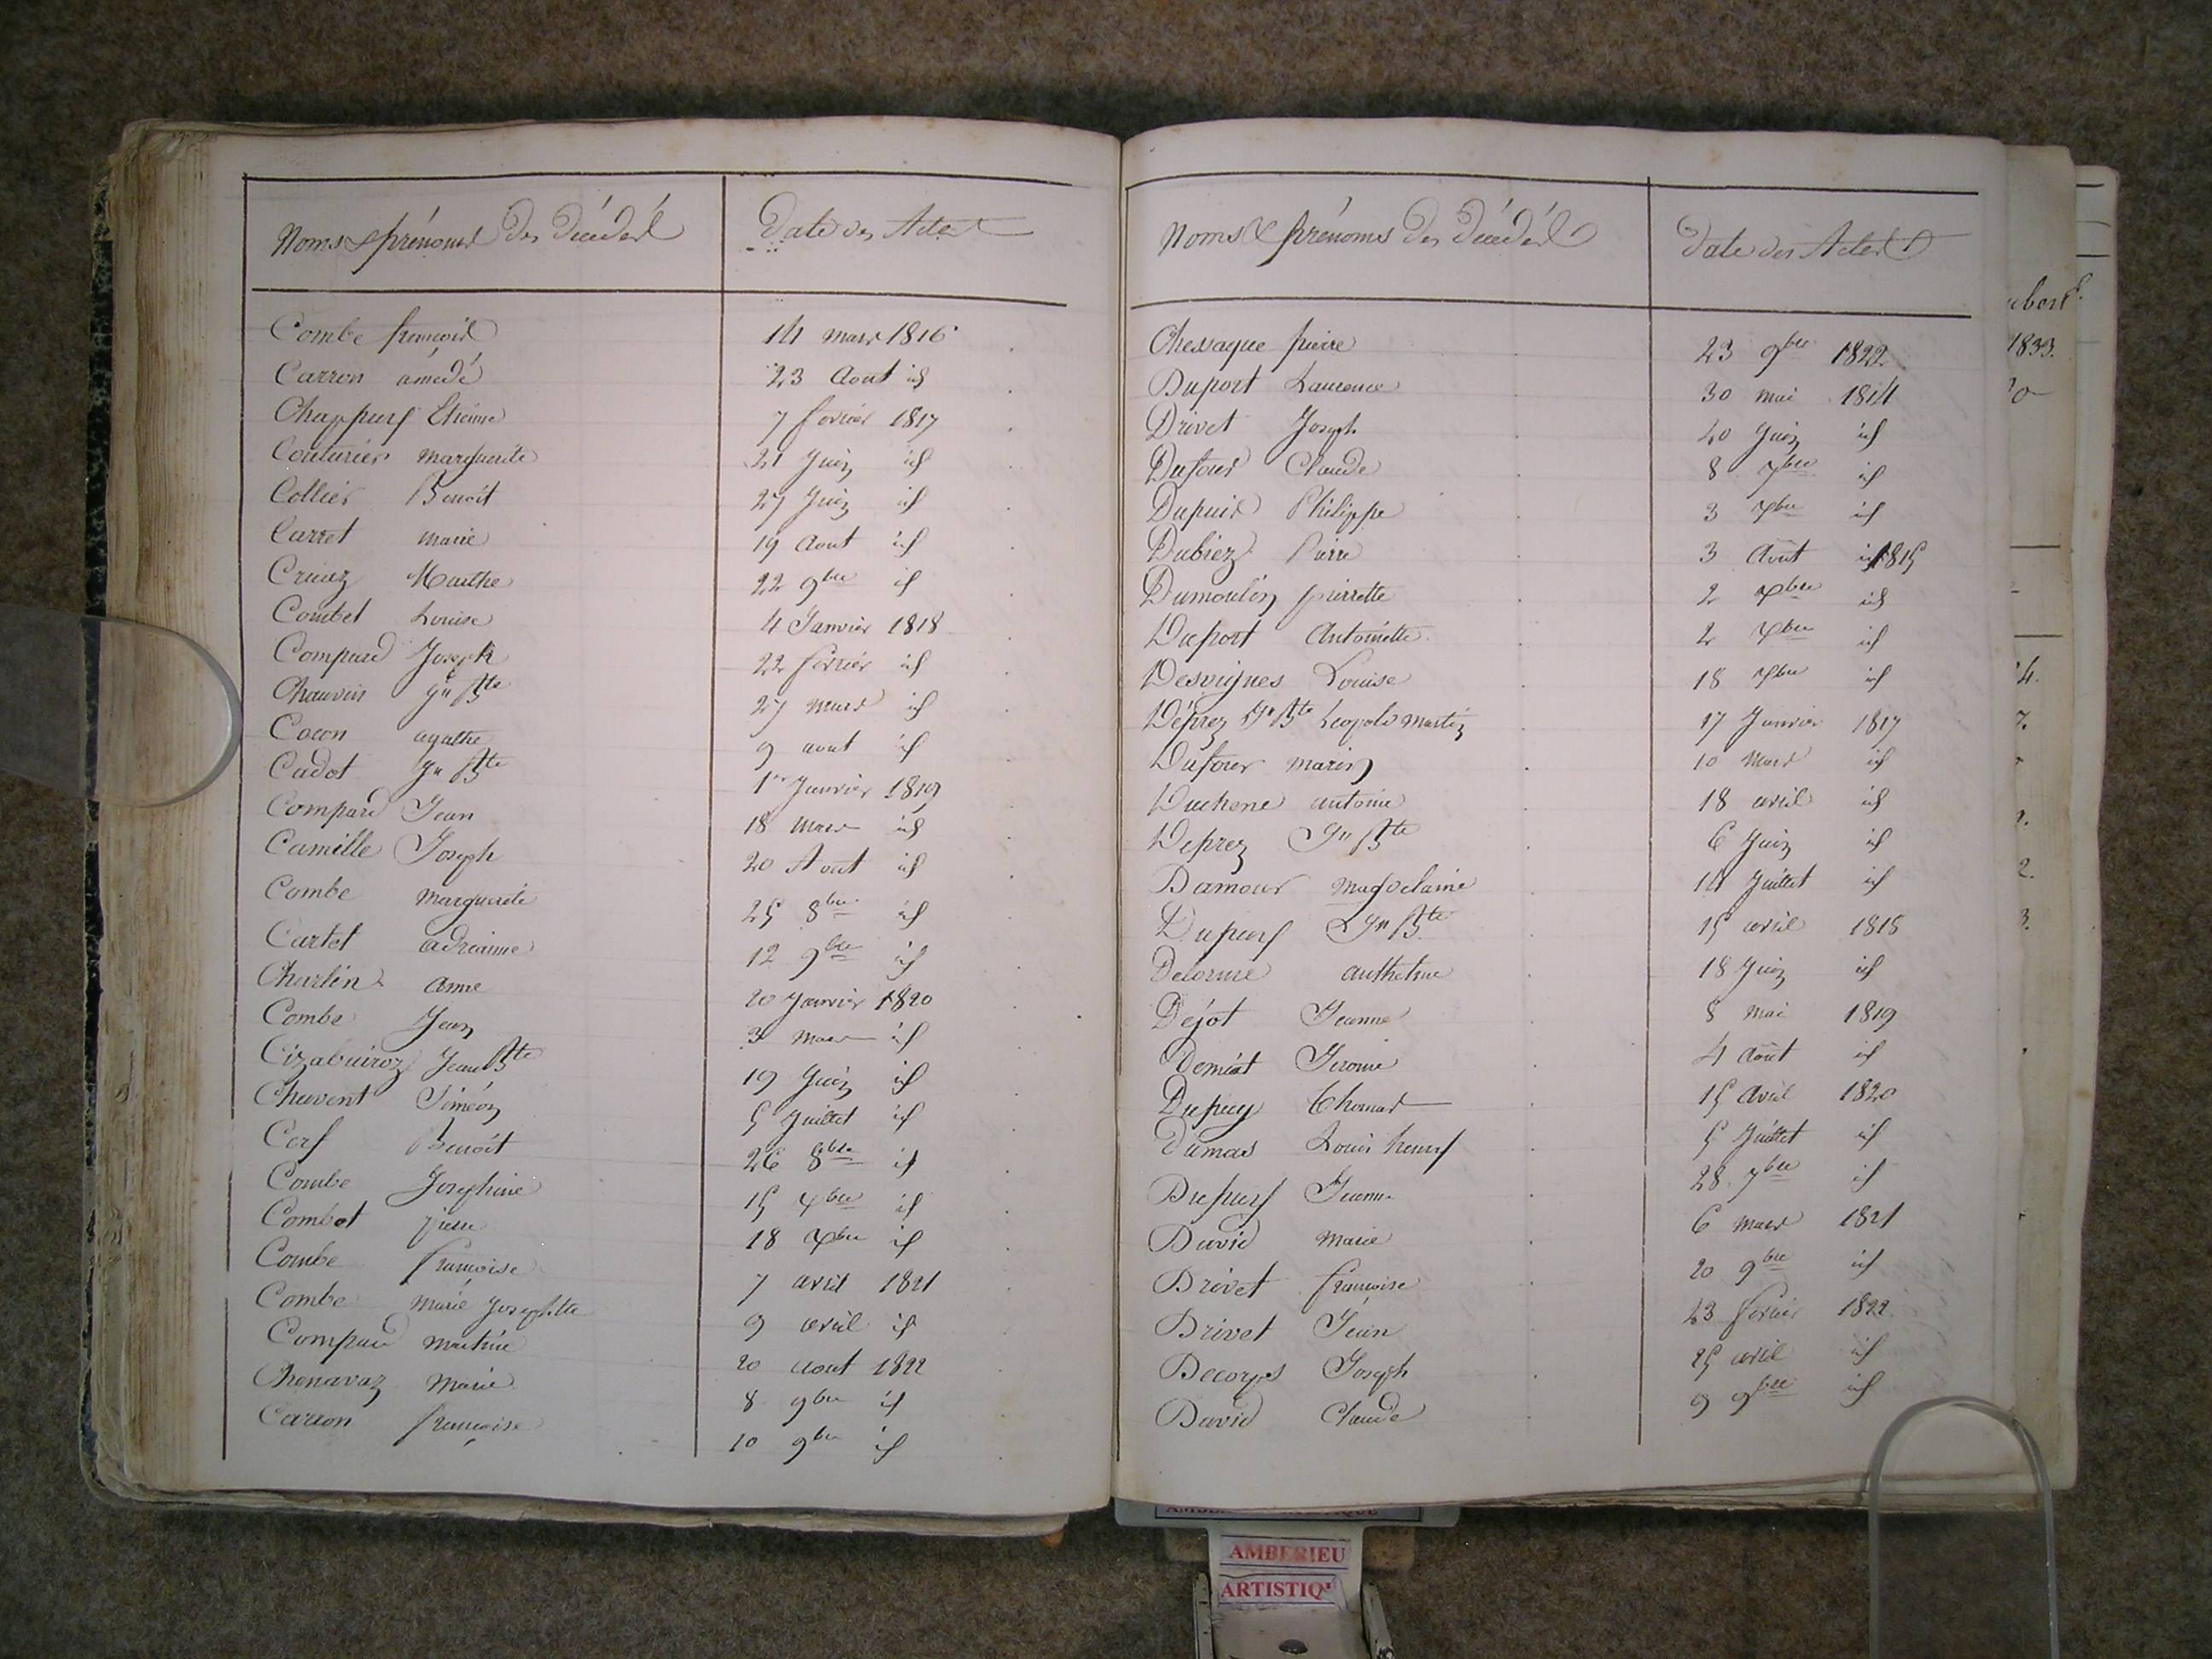 Noms & prénoms des décédés Date des Actes
Combe françois 14 mars 1816
Carron amédé 23 Aout id
Chappuis Etienne 7 fevrier 1817
Couturier marguerite 21 Juin id
Collier Benoît 27 Juin id
Carret marie 19 Aout id
Cruiez Marthe 22 9bre id
Combet Louise 4 Janvier 1818
Compard Joseph 22 fevrier id
Chauvin Jn Bte 27 mars id
Cocon agathe 9 aout id
Cadot Jn Bte 1er Janvier 1819
Compard Jean 18 mars id
Camille Joseph 20 Aout id
Combe marguerite 25 8bre id
Cartet adrianne 12 9bre id
Charlin anne 20 Janvier 1820
Combe Jean 3 mars id
Cizabuiroz Jean Bte 19 Juin id
Chavent Siméon 5 Juillet id
Cerf Benoît 26 8bre id
Combe Josephine 15 xbre id
Combet 18 xbre id
Combe françoise 7 avril 1821
Combe marie Josephte 9 avril id
Compard martine 20 aout 1822
Chenavaz marie 8 9bre id
Carron françoise 10 9bre id
Noms & prénoms des décédés Date des Actes
Chessaque pierre 23 9bre 1822
Duport Laurence 30 mai 1814
Drivet Joseph 20 Juin id
Dufour Claude 8 7bre id
Dupuis Philippe 3 xbre id
Dubiez Pierre 3 Août 1815
Dumoulin pierrette 2 xbre id
Duport Antoinette 2 xbre id
Desvignes Louise 18 xbre id
Déprez Jn Bte Leopold martin 17 Janvier 1817
Dufour marin 10 mars id
Duchene antoine 18 avril id
Deprez Jn Bte 6 Juin id
Damour magdelaine 14 Juillet id
Dupuis Jn Bte 15 avril 1818
Delorme anthelme 18 Juin id
Déjot Jeanne 8 mai 1819
Demiat Jerome 4 août id
Dupuy Thomas 15 Avril 1820
Dumas Louis henry 5 Juillet id
Dupuis Jeanne 28 7bre id
David Marie 6 mars 1821
Drivet françoise 20 9bre id
Drivet Jean 23 fevrier 1822
Decorps Joseph 25 avril id
David Claude 9 9bre id
1833.
AMBERIEU
ARTISTIQ